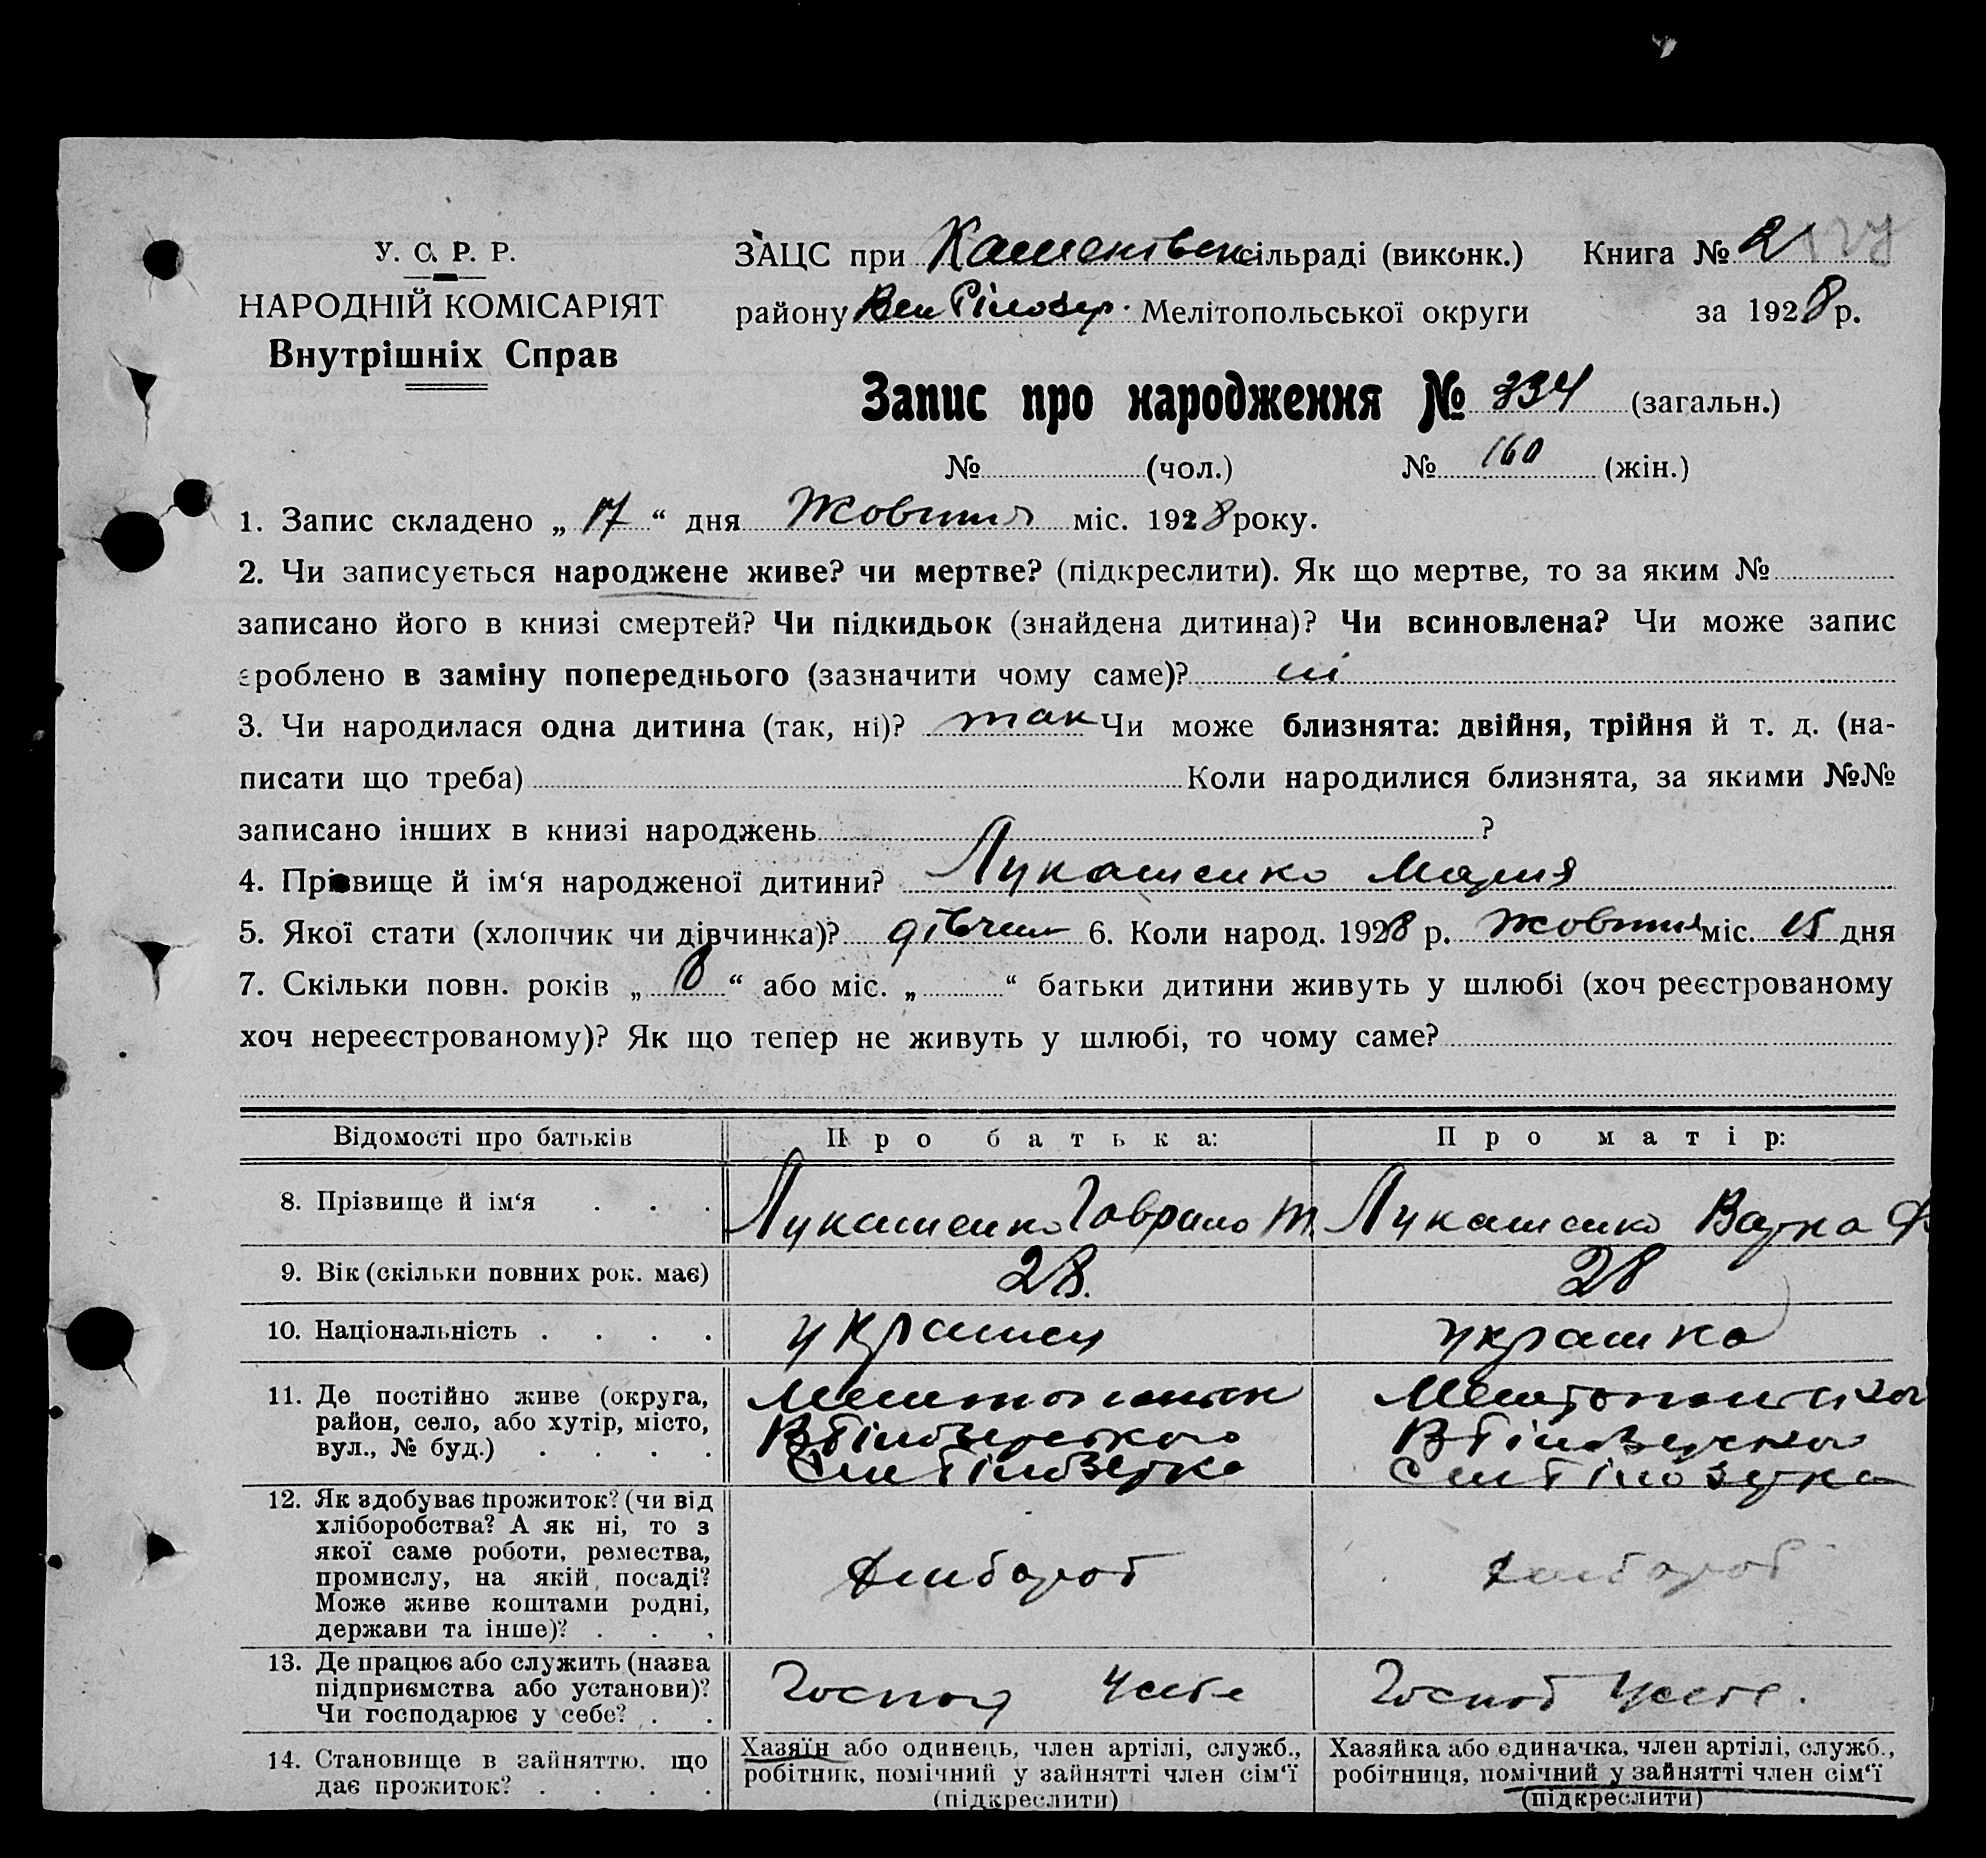 У. С. Р. Р.
НАРОДНІЙ КОМІСАРІЯТ
Внутрішніх Справ
ЗАЦС при Каменівск сільраді (виконк.) Книга № 2
району Вел Білозер. Мелітопольської округи за 1928 р.
Запис про народження № 334 (загальн.)
№ (чол.) № 160 (жін.)
1. Запис складено „ 17 “ дня Жовтня міс. 1928 року.
2. Чи записується народжене живе? чи мертве? (підкреслити). Як що мертве, то за яким №
записано його в книзі смертей? Чи підкидьок (знайдена дитина)? Чи всиновлена? Чи може запис
зроблено в заміну попереднього (зазначити чому саме)? ні
3. Чи народилася одна дитина (так, ні)? так Чи може близнята: двійня, трійня й т. д. (на-
писати що треба) Коли народилися близнята, за якими №№
записано інших в книзі народжень ?
4. Прізвище й ім‘я народженої дитини? Лукашенко Мария
5. Якої стати (хлопчик чи дівчинка)? дівчин 6. Коли народ. 1928 р. Жовтня міс. 15 дня
7. Скільки повн. років „ 8 “ або міс. „ “ батьки дитини живуть у шлюбі (хоч реєстрованому
хоч нереєстрованому)? Як що тепер не живуть у шлюбі, то чому саме?
Відомості про батьків Про батька: Про матір:
8. Прізвище й ім‘я . . . Лукашенко Гаврило Т. Лукашенко Варка Ф
9. Вік (скільки повних рок. має) 28. 28
10. Національність . . . . украинец украинка
11. Де постійно живе (округа,
район, село, або хутір, місто,
вул., № буд.) . . . .
Мелитопольск
В Білозерського
См Білозерка
В Білозерського
См Білозерка
12. Як здобуває прожиток? (чи від
хліборобства? А як ні, то з
якої саме роботи, ремества,
промислу, на якій посаді?
Може живе коштами родні,
держави та інше)? . . .
хлибороб хлибороб
13. Де працює або служить (назва
підприємства або установи)?
Чи господарює у себе? . .
Господ Усебе Господ Усебе.
14. Становище в зайняттю, що
дає прожиток? . . . .
Хазяїн або одинець, член артілі, служб.,
робітник, помічний у зайнятті член сім‘ї
(підкреслити)
Хазяйка або єдиначка, член артілі, служб.,
робітниця, помічний у зайнятті член сім‘ї
(підкреслити)